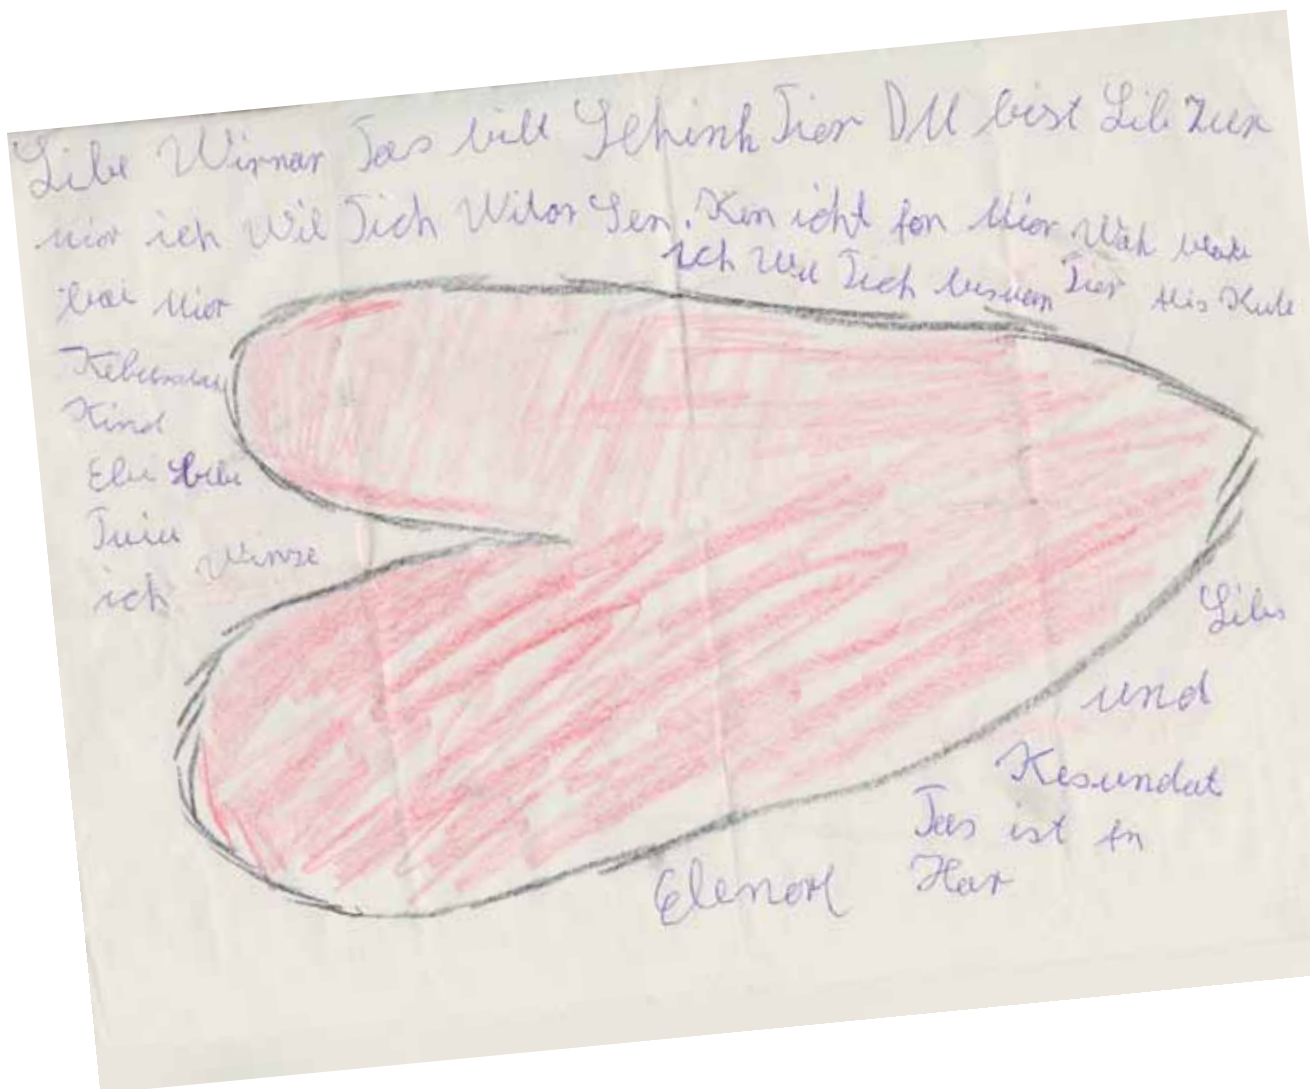 Libe Wirnar Tas bill Schink Tier DU bist Lib Zux
mir ich Wil Tich Witor Sen. Ken icht fon Mior Wäk
ich Wil Tich besuen Tier Alis Kute
bai Mior
Kind
Tuiu
ich Winze
Libs
und
Kesundat
Tas ist in
Har
Elenorl